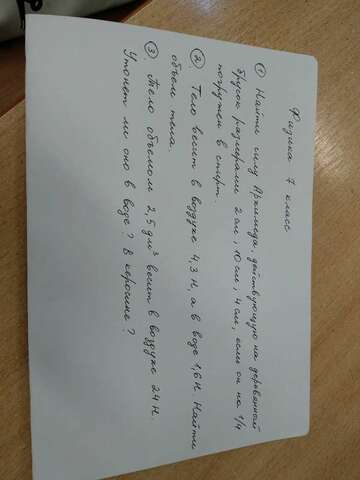 Физика 7 класс
① Найти силу Архимеда, действующую на деревянный
брусок размерами 2 см, 10 см, 4 см, если он на 1/4
погружен в спирт.
② Тело весит в воздухе 4,3 Н, а в воде 1,6 Н. Найти
объем тела.
③ Тело объемом 2,5 дм³ весит в воздухе 24 Н.
Утонет ли оно в воде? В керосине?